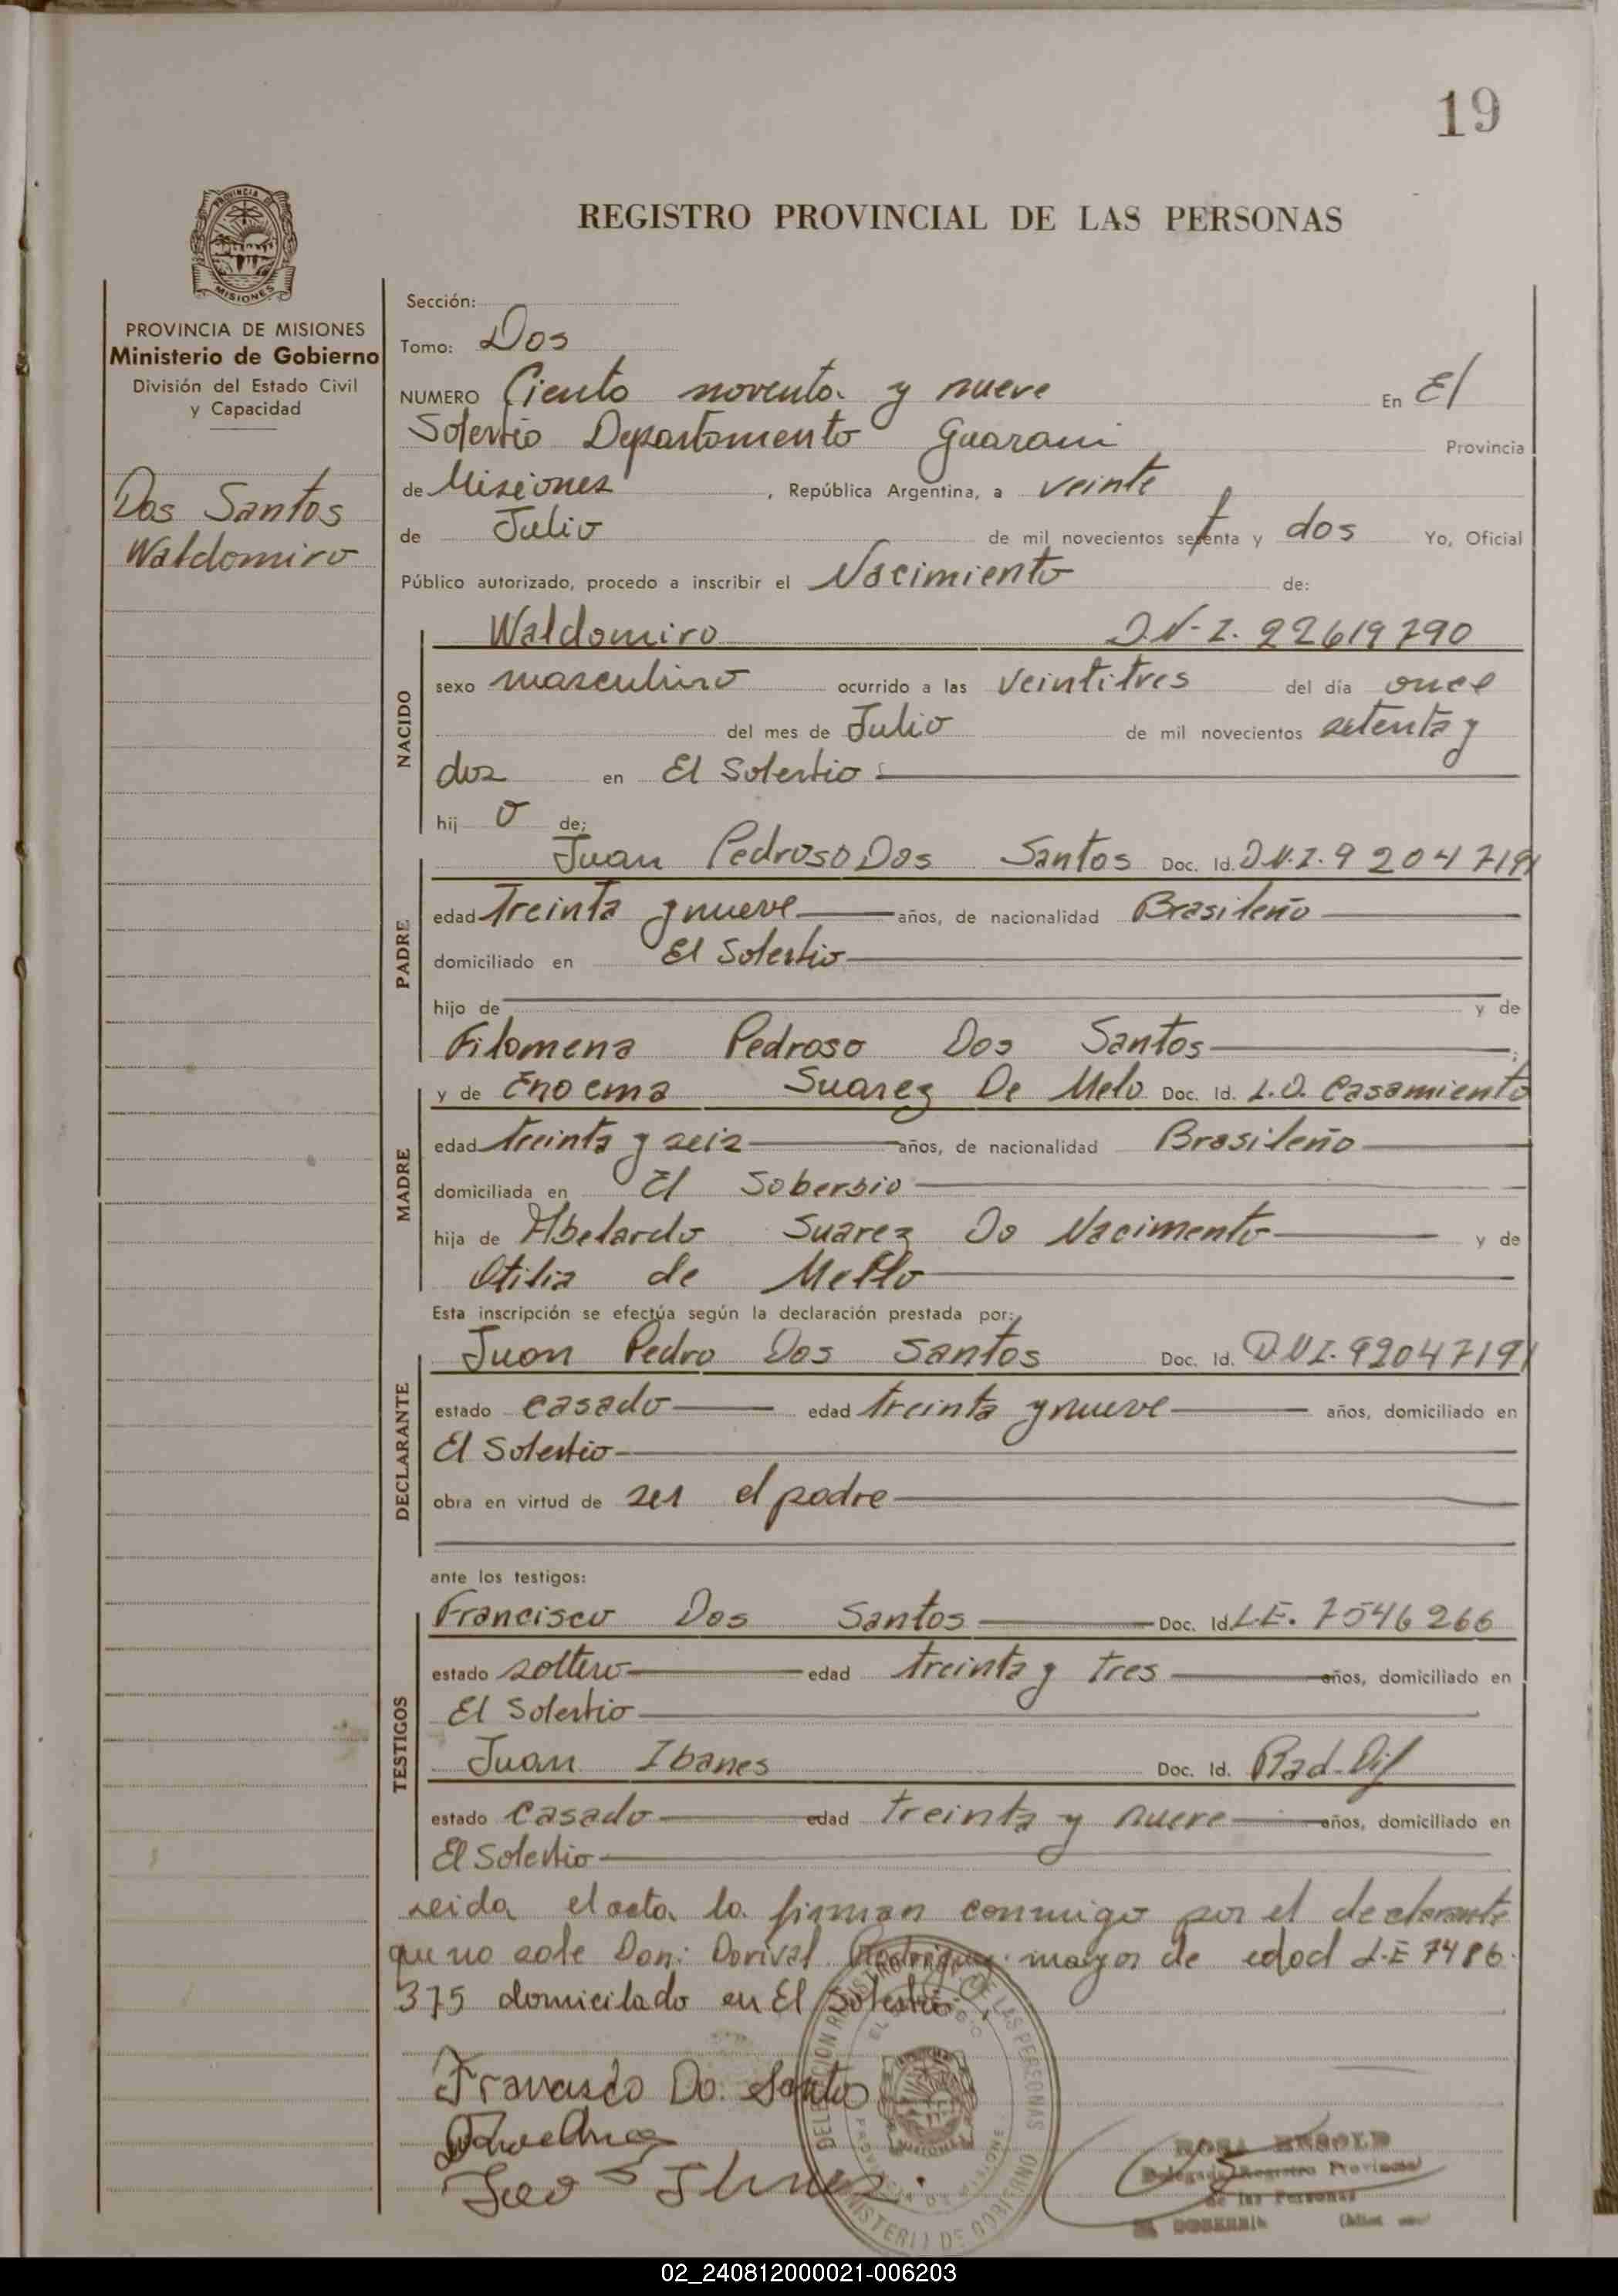 19
REGISTRO PROVINCIAL DE LAS PERSONAS
PROVINCIA DE MISIONES
Ministerio de Gobierno
División del Estado Civil
y Capacidad
Dos Santos
Waldomiro
Sección:
Tomo: Dos
NUMERO Ciento noventa y nueve En El
Soberbio Departamento Guarani Provincia
de Misiones, República Argentina, a veinte
de Julio de mil novecientos setenta y dos Yo, Oficial
Público autorizado, procedo a inscribir el Nacimiento de:
NACIDO
Waldomiro D.N.I. 22619790
sexo masculino ocurrido a las veintitres del día once
del mes de Julio de mil novecientos setenta y
dos en El Soberbio
hij o de;
PADRE
Juan Pedroso Dos Santos Doc. Id. D.N.I. 92047191
edad treinta y nueve años, de nacionalidad Brasileño
domiciliado en El Soberbio
hijo de y de
Filomena Pedroso Dos Santos;
MADRE
y de Enoema Suarez De Melo Doc. Id. L.D. Casamiento
edad treinta y seis años, de nacionalidad Brasileño
domiciliada en El Sobersio
hija de Abelardo Suarez Do Nacimento y de
Otilia de Mello
Esta inscripción se efectúa según la declaración prestada por:
DECLARANTE
Juan Pedro Dos Santos Doc. Id. D.N.I. 92047191
estado casado edad treinta y nueve años, domiciliado en
El Soberbio
obra en virtud de ser el padre
ante los testigos:
TESTIGOS
Francisco Dos Santos Doc. Id. L.E. 7546266
estado soltero edad treinta y tres años, domiciliado en
El Soberbio
Juan Ibanes Doc. Id. Rad. Dif
estado casado edad treinta y nueve años, domiciliado en
El Soberbio
Leida el acta la firman conmigo por el declarante
que no sabe Don: Dorival Rodriguez mayor de edad L.E 7486.
375 domicilado en El Soberbio.
DELEGACION REGISTRO PROV. DE LAS PERSONAS
EL SOBERBIO
PROVINCIA DE MISIONES
MINISTERIO DE GOBIERNO
Delegada Registro Provincial
de las Personas
02_240812000021-006203